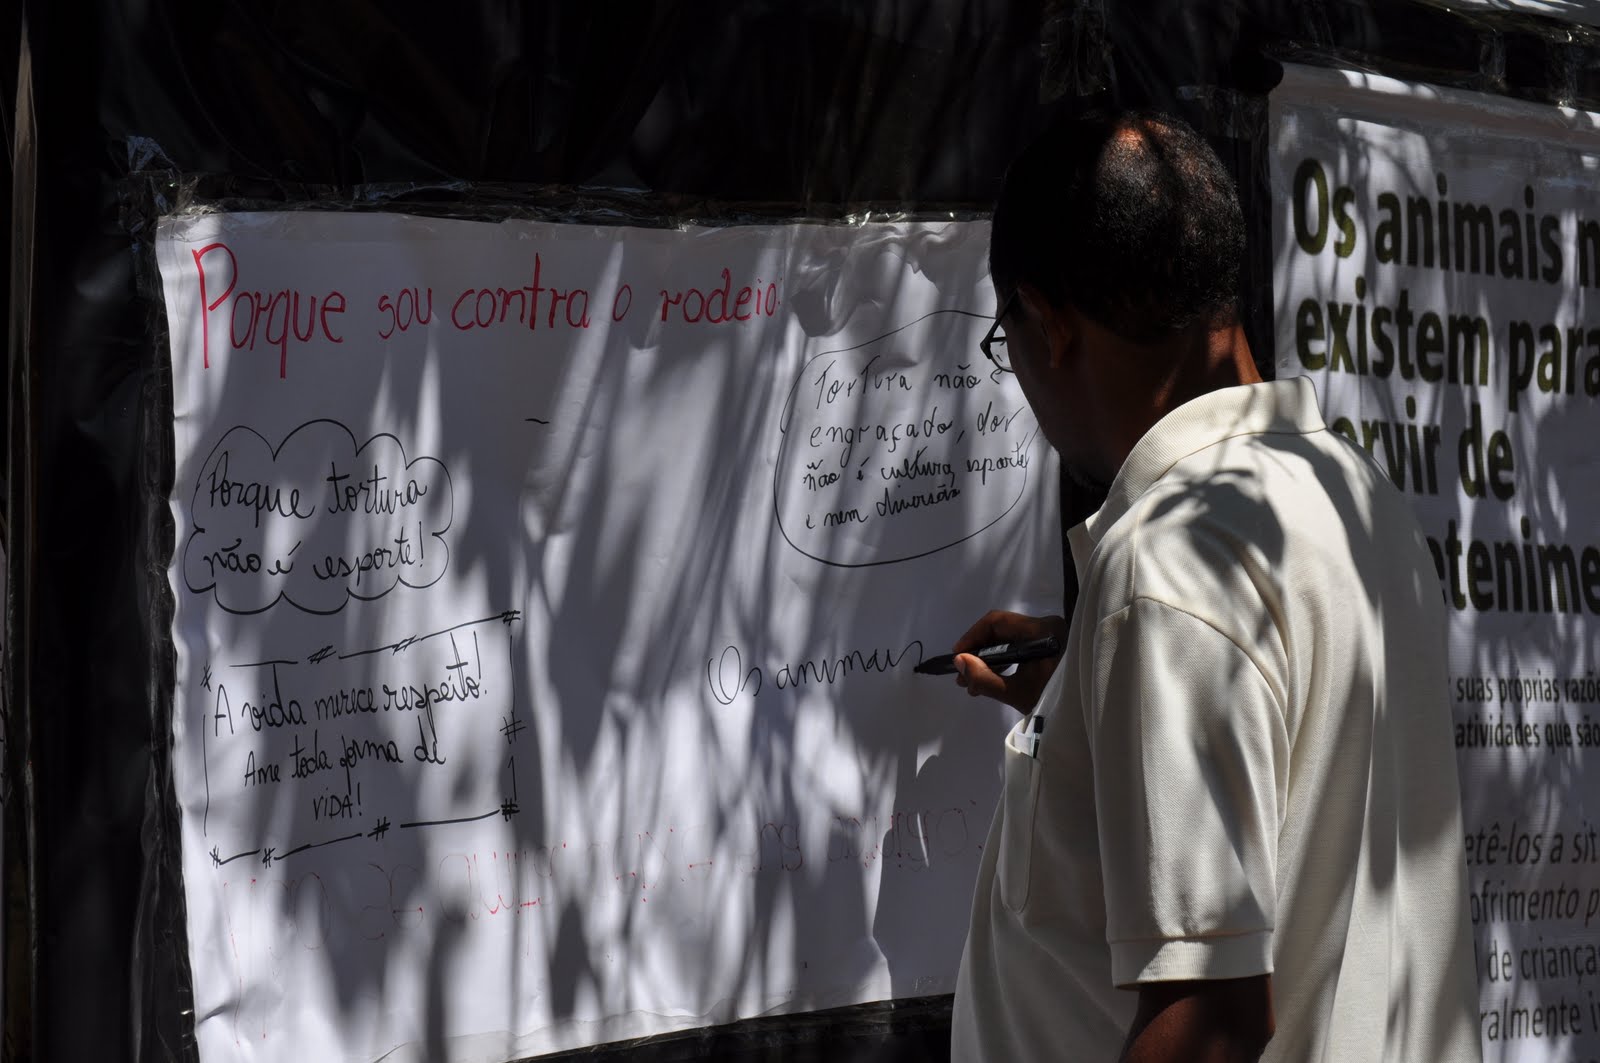 Porque sou contra o rodeio:
Porque tortura
não é esporte!
Tortura não é
engraçado, dor
não é cultura, esporte
e nem diversão
A vida merece respeito!
Ame toda forma de
VIDA!
Os animais
Os animais n
existem para
ervir de
etenime
suas próprias razõe
atividades que são
etê-los a sit
ofrimento p
de criança
ralmente i